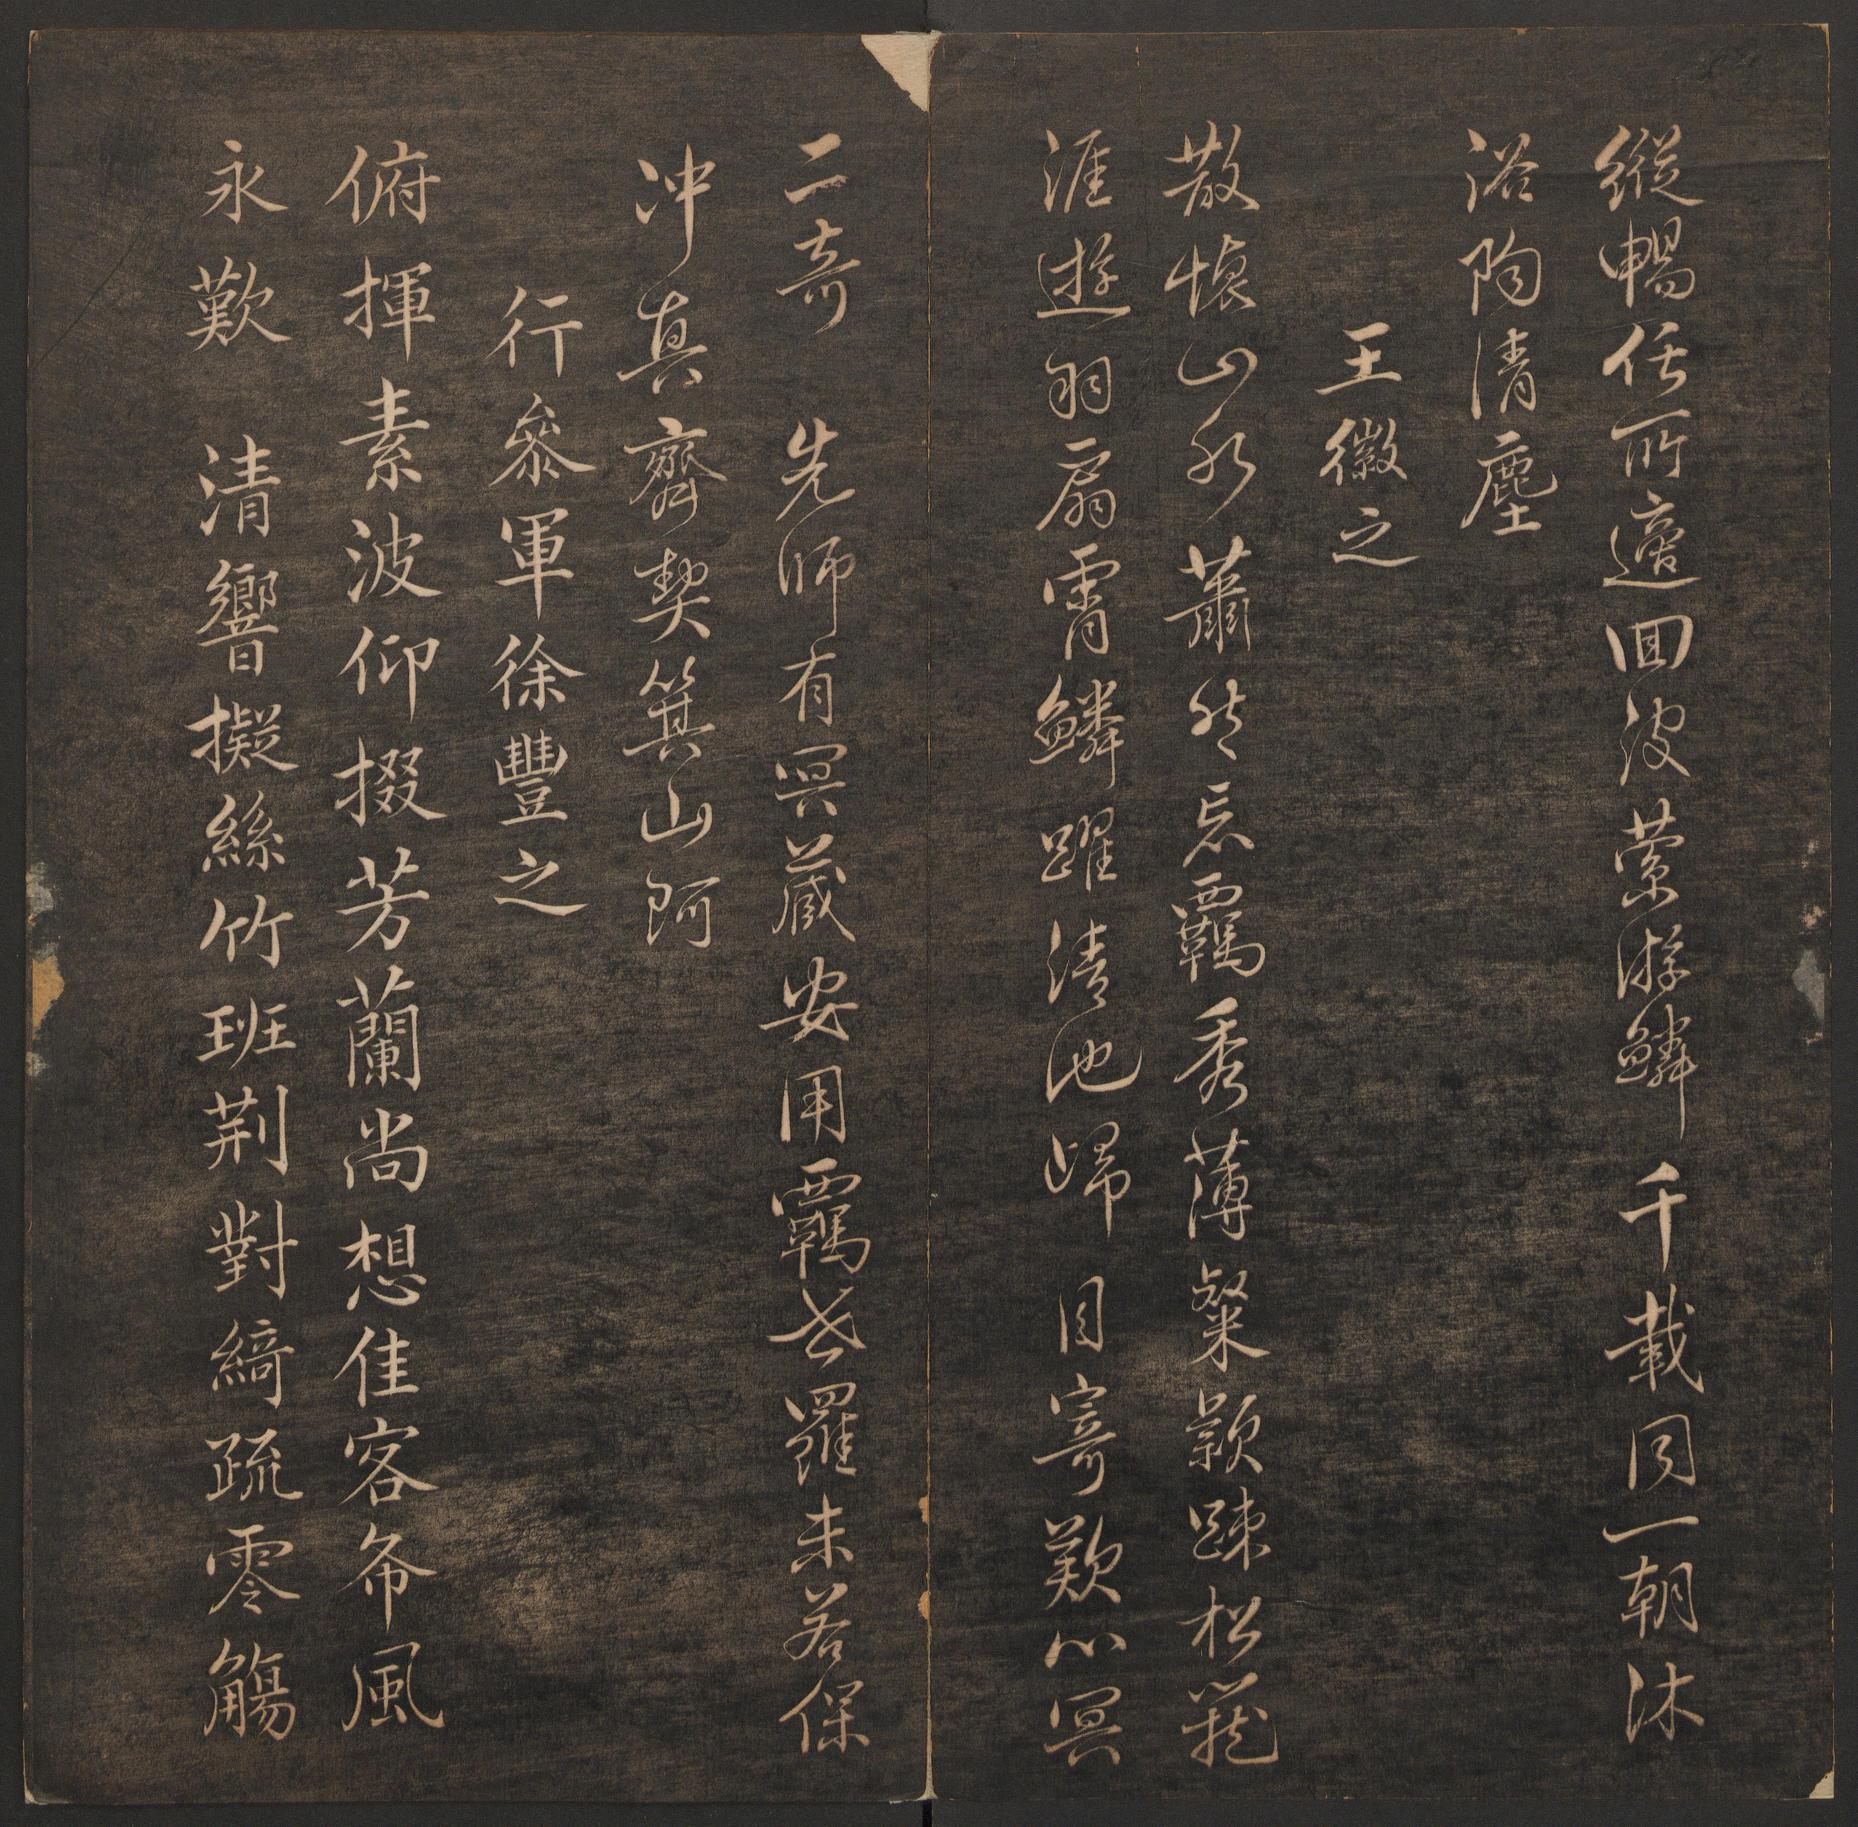 縱暢任所適回波縈游鱗　千載同一朝沐
浴陶清塵
王徽之
散懷山水蕭然忘羈秀薄粲穎踈松籠
涯遊羽扇霄鱗躍清池歸　目寄歎心冥
二奇　先師有冥藏安用羈世羅未若保
沖真齊契箕山阿
行參軍徐豐之
俯揮素波仰掇芳蘭尚想佳客希風
永歎　清響擬絲竹班荆對綺疏零觴